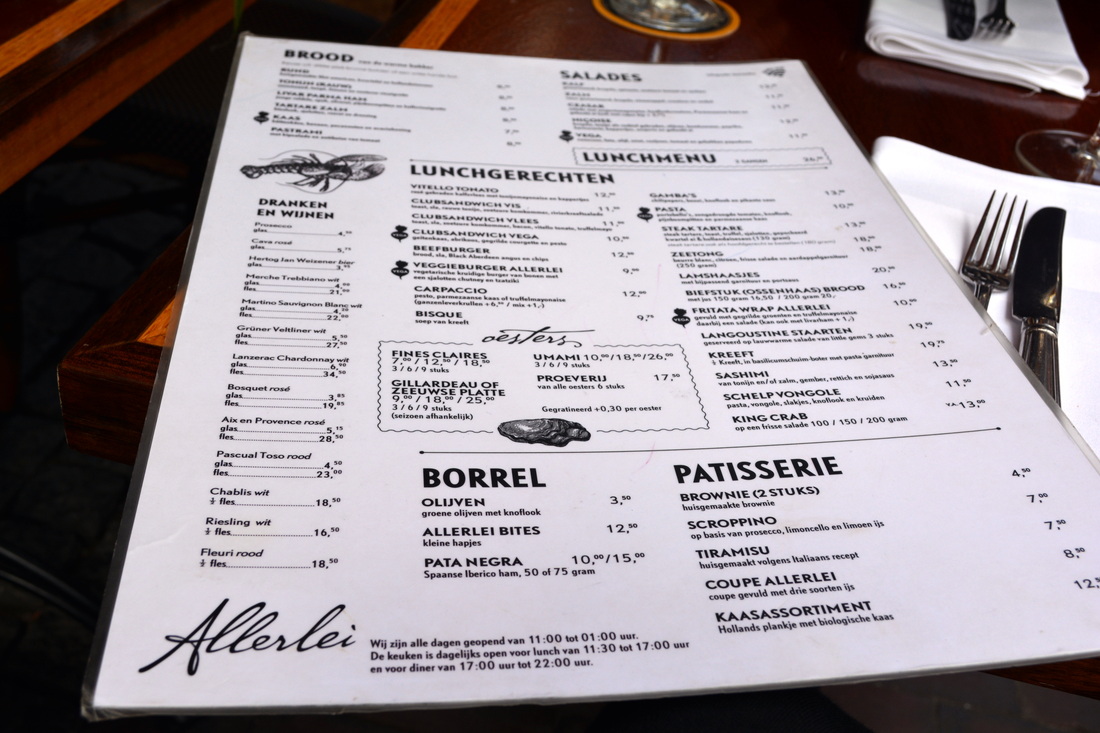 BROOD van de warme bakker
RUND
TONIJN (RAUW)
LIVAR PARMA HAM
TARTARE ZALM
KAAS
PASTRAMI
SALADES
KALF
ZALM
CAESAR
NIÇOISE
VEGA
LUNCHMENU 2 GANGEN 26,⁵⁰
DRANKEN
EN WIJNEN
Prosecco
glas 4,⁵⁰
Cava rosé
glas 5,⁷⁵
Hertog Jan Weizener bier
glas 3,⁹⁵
Merche Trebbiano wit
glas
fles
Martino Sauvignon Blanc wit
glas
fles
Grüner Veltliner wit
glas 5,⁵⁰
fles 27,⁵⁰
Lanzerac Chardonnay wit
glas 6,⁹⁰
fles 34,⁵⁰
Bosquet rosé
glas 3,⁸⁵
fles 19,⁸⁵
Aix en Provence rosé
glas 5,¹⁵
fles 28,⁵⁰
Pascual Toso rood
glas 4,⁵⁰
fles 23,⁰⁰
Chablis wit
½ fles 18,⁵⁰
Riesling wit
½ fles 16,⁵⁰
Fleuri rood
½ fles 18,⁵⁰
LUNCHGERECHTEN
VITELLO TONATO 12,⁰⁰
rosé gebraden kalfsrosé met tonijnmayonaise en kappertjes
CLUBSANDWICH VIS 11,⁰⁰
toast, sla, rauwe tonijn, zoetzure komkommer, rivierkreeftsalade
CLUBSANDWICH VLEES 11,⁰⁰
toast, sla, zoetzure komkommer, bacon, vitello tonato, truffelmayo
CLUBSANDWICH VEGA 10,⁰⁰
geitenkaas, abrikoos, gegrilde courgette en pesto
BEEFBURGER 12,⁰⁰
brood, sla, Black Aberdeen angus en chips
VEGGIEBURGER ALLERLEI 9,⁰⁰
vegetarische kruidige burger van bonen met
een sjalotten chutney en tzatziki
CARPACCIO 12,⁰⁰
pesto, parmezaanse kaas of truffelmayonaise
(ganzenleverkrullen +6,⁰⁰ / mix +1,-)
BISQUE 9,⁷⁵
soep van kreeft
GAMBA'S
chilipepers, boter, knoflook en pikante saus
PASTA
portobello's, zongedroogde tomaten, knoflook,
pijnboompitten en parmezaanse kaas
STEAK TARTARE
steak tartare, toast, truffel, sjalotten, geserveerd
kwartel ei & hollandaisesaus (120 gram)
ZEETONG
beurre blanc, citroen, frisse salade en aardappelgarnituur
(250 gram)
LAMSHAASJES 20,⁰⁰
met bijpassend garnituur en patatas
BIEFSTUK (OSSENHAAS) BROOD 16,⁵⁰
met jus 150 gram 16,50 / 200 gram 20,-
FRITATA WRAP ALLERLEI 10,⁰⁰
gevuld met gegrilde groenten en truffelmayonaise
daarbij een salade (kan ook met livarham + 1,-)
LANGOUSTINE STAARTEN 19,⁵⁰
geserveerd op lauwwarme salade van little gems 3 stuks
KREEFT 19,⁷⁵
½ Kreeft, in basilicumschuim-boter met pasta garnituur
SASHIMI 13,⁵⁰
van tonijn en/of zalm, gember, rettich en sojasaus
SCHELP VONGOLE 11,⁵⁰
pasta, vongole, slakjes, knoflook en kruiden
KING CRAB V.A. 13,⁰⁰
op een frisse salade 100 / 150 / 200 gram
oesters
FINES CLAIRES
7,⁰⁰/ 12,⁵⁰ / 18,⁵⁰
3 / 6 / 9 stuks
GILLARDEAU OF
ZEEUWSE PLATTE
9,⁰⁰ / 18,⁰⁰ / 25,⁰⁰
3 / 6 / 9 stuks
(seizoen afhankelijk)
UMAMI 10,⁰⁰/18,⁰⁰/26,⁰⁰
3 / 6 / 9 stuks
PROEVERIJ 17,⁵⁰
van alle oesters 6 stuks
Gegratineerd +0,30 per oester
BORREL
OLIJVEN 3,⁵⁰
groene olijven met knoflook
ALLERLEI BITES 12,⁵⁰
kleine hapjes
PATA NEGRA 10,⁰⁰/15,⁰⁰
Spaanse Iberico ham, 50 of 75 gram
PATISSERIE
BROWNIE (2 STUKS) 4,⁵⁰
huisgemaakte brownie
SCROPPINO 7,⁰⁰
op basis van prosecco, limoncello en limoen ijs
TIRAMISU 7,⁵⁰
huisgemaakt volgens Italiaans recept
COUPE ALLERLEI 8,⁵⁰
coupe gevuld met drie soorten ijs
KAASASSORTIMENT 12,⁵
Hollands plankje met biologische kaas
Allerlei
Wij zijn alle dagen geopend van 11:00 tot 01:00 uur.
De keuken is dagelijks open voor lunch van 11:30 tot 17:00 uur
en voor diner van 17:00 uur tot 22:00 uur.